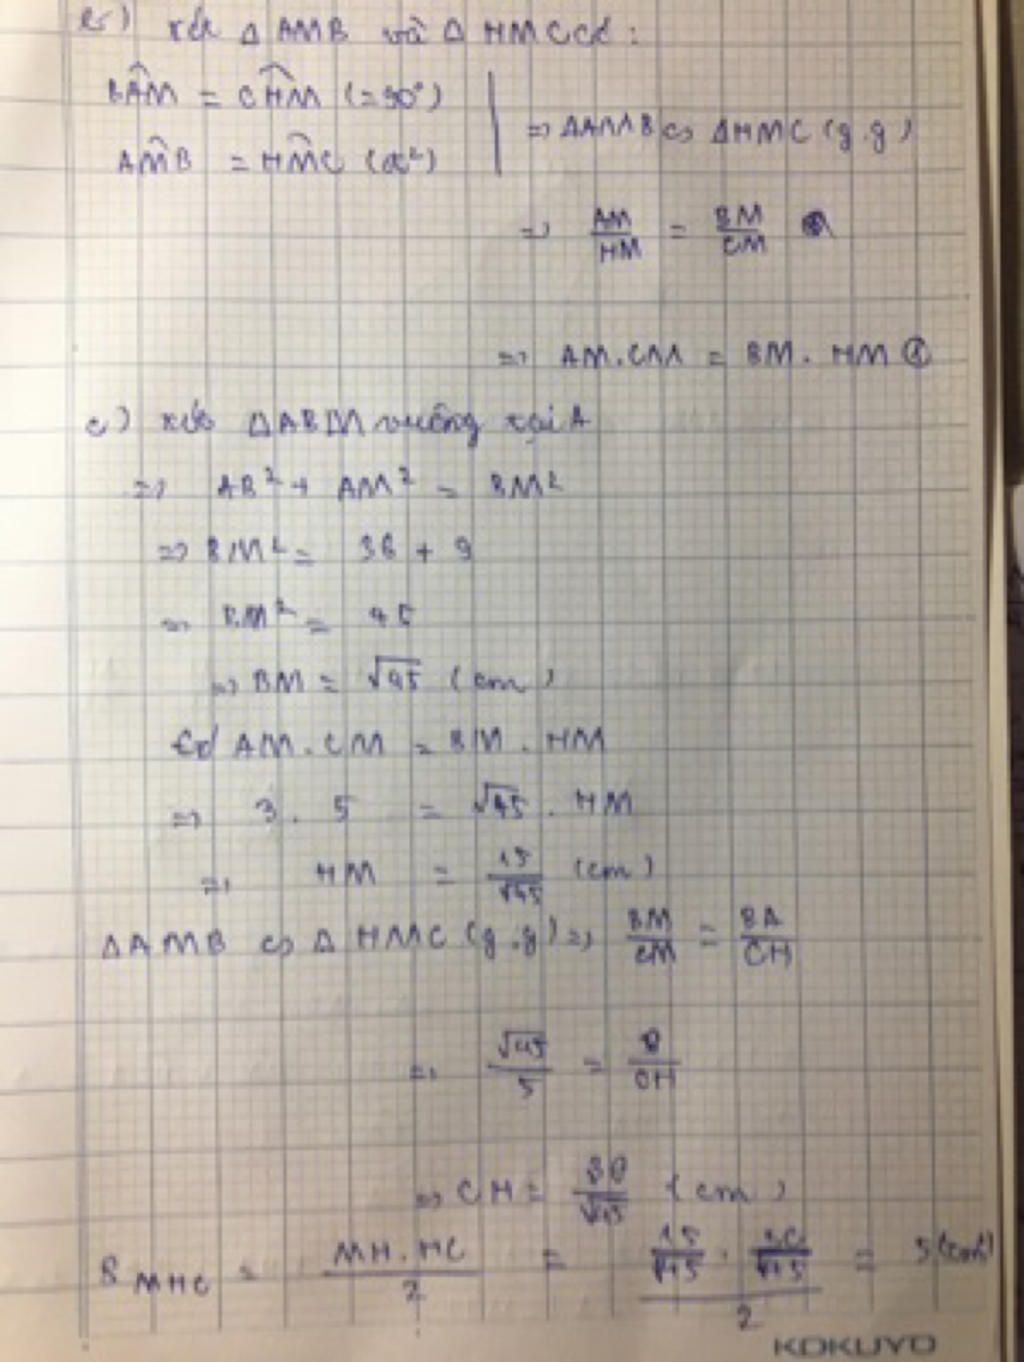 xét Δ AMB và Δ HMC có :
BÂM = CĤM (=90°)
AM̂B = HM̂C (đ²)
=> ΔAMB ∽ ΔHMC (g.g)
=> AM/HM = BM/CM
=> AM.CM = BM.HM
c) xét ΔABM vuông tại A
=> AB² + AM² = BM²
=> BM² = 36 + 9
=> BM² = 45
=> BM = √45 (cm)
Có AM.CM = BM.HM
=> 3.5 = √45.HM
=> HM = 15/√45 (cm)
ΔAMB ∽ ΔHMC (g.g) => BM/CM = BA/CH
=> √45/5 = 6/CH
=> CH = 30/√45 (cm)
S MHC = MH.HC/2 = (15/√45 . 30/√45)/2 = 5 (cm²)
KOKUYO